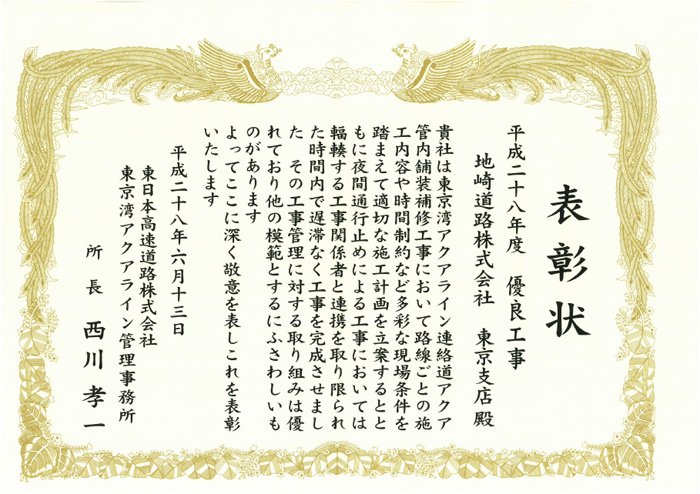 表彰状
平成二十八年度　優良工事
地崎道路株式会社　東京支店 殿
貴社は東京湾アクアライン連絡道アクア
管内舗装補修工事において路線ごとの施
工内容や時間制約など多彩な現場条件を
踏まえて適切な施工計画を立案するとと
もに夜間通行止めによる工事においては
輻輳する工事関係者と連携を取り限られ
た時間内で遅滞なく工事を完成させまし
た　その工事管理に対する取り組みは優
れており他の模範とするにふさわしいも
のがあります
よってここに深く敬意を表しこれを表彰
いたします
平成二十八年六月十三日
東日本高速道路株式会社
東京湾アクアライン管理事務所
所長　西川孝一